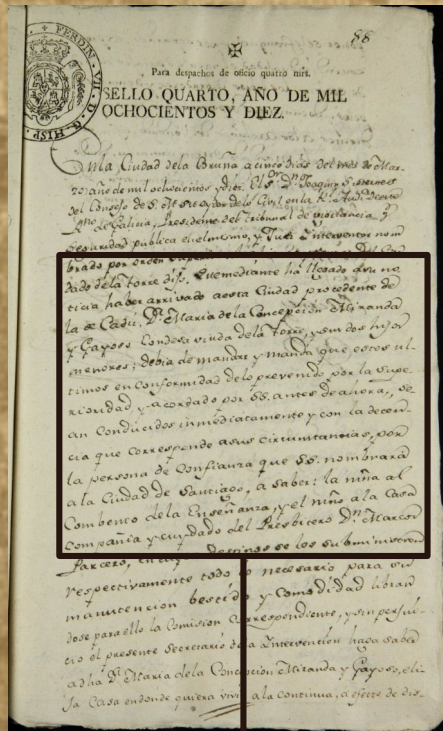 FERDIN. VII. D. G. HISP.
88
✠
Para despachos de oficio quatro mrs.
SELLO QUARTO, AÑO DE MIL
OCHOCIENTOS Y DIEZ.
En la Ciudad de la Coruña a cinco dias del mes de Mar-
zo año de mil ochocientos y diez: El Sr. Dn. Joaquin
del Consejo de S. M. su oydor de lo Civil en la Rl. Audiencia
Rno. de Galicia, Presidente del tribunal de vigilancia y
seguridad publica en el mismo, y Juez Interventor nom
brado por orden
dado de la torre dijo: Que mediante há llegado a su no
ticia haber arrivado a esta Ciudad procedente de
la de Cadiz, Dª. Maria de la Concepcion Miranda
y Gayoso Condesa viuda de la torre, y sus dos hijos
menores; debia de mandar y mandó que estos ul-
timos en conformidad de lo prevenido por la supe
rioridad y acordado por SS. antes de ahora, se-
an conducidos inmediatamente y con la decen-
cia que corresponde a sus circunstancias, por
la persona de confianza que SS. nombrará
a la Ciudad de Santiago, a saber: la niña al
Combento de la Enseñanza, y el niño a la Casa
compañia y cuydado del Presbitero Dn. Marcos
Parcero, en cuyos destinos se les subministrará
respectivamente todo lo necesario para su
manutencion bestido y comodidad libran
dose para ello la Comision correspondiente, y sin perjui-
cio el presente Secretario de la Intervencion haga saber
a dha Dª. Maria de la Concepcion Miranda y Gayoso, eli-
ja Casa endonde quiera vivir a la continua, a efecto de dis-